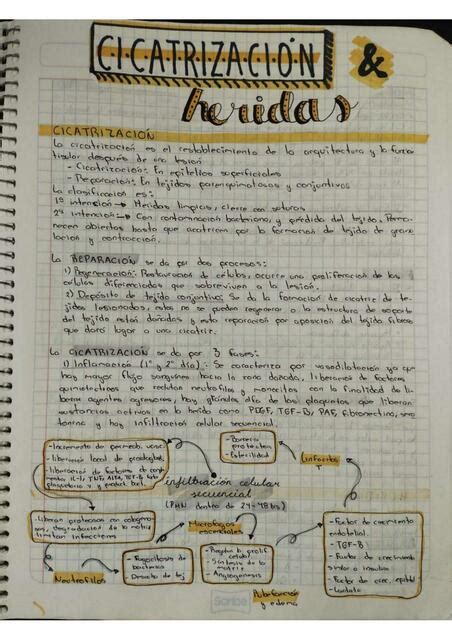 CICATRIZACIÓN &
heridas
CICATRIZACIÓN
La cicatrización es el restablecimiento de la arquitectura y la función
tisular después de una lesión
- Cicatrización: En epitelios superficiales
- Reparación: En tejidos parenquimatosos y conjuntivos
La clasificación es:
1ª intención → Heridas limpias, cierre con suturas
2ª intención → Con contaminación bacteriana, y pérdida del tejido. Perma-
necen abiertas hasta que cicatricen por la formación de tejido de granu-
lación y contracción.
La REPARACIÓN se da por dos procesos:
1) Regeneración: Restauración de células, ocurre una proliferación de las
células diferenciadas que sobreviven a la lesión.
2) Depósito de tejido conjuntivo: Se da la formación de cicatriz de te-
jidos lesionados, estos no se pueden regenerar o la estructura de soporte
del tejido están dañados y esta reparación por aposición del tejido fibroso
que dará lugar a una cicatriz.
La CICATRIZACIÓN se da por 3 fases:
1) Inflamación (1º y 2º día): Se caracteriza por vasodilatación ya que
hay mayor flujo sanguíneo hacia la zona dañada, liberamos de factores
quimiotácticos que reclutan neutrófilos y monocitos con la finalidad de li-
berar agentes agresores, hay gránulos alfa de las plaquetas que liberan
sustancias activas en la herida como PDGF, TGF-B, PAF, fibronectina, sero-
tonina y hay infiltración celular secuencial.
- Incremento de permeab. vasc.
- liberación local de prostagland.
- liberación de factores de
IL-1, TNF, TGF-B,
- Barrera
protectora
- Esterilidad
Linfocitos
T
infiltración celular
secuencial
(PMN dentro de 24-48 hrs)
- Liberan proteasas con colagenasa,
degradación de la matriz
limitan infecciones
Macrófagos
esenciales
- Factor de crecimiento
endotelial
- TGF-B
- Factor de crecimiento
similar a insulina
- Factor de crec. epitelial
- Lactato
Neutrófilos
- Fagocitosis de
bacterias
- Desecho de tej
- Regulan la prolif.
celular
- Síntesis de la
matriz
- Angiogénesis
y edema
Scribe